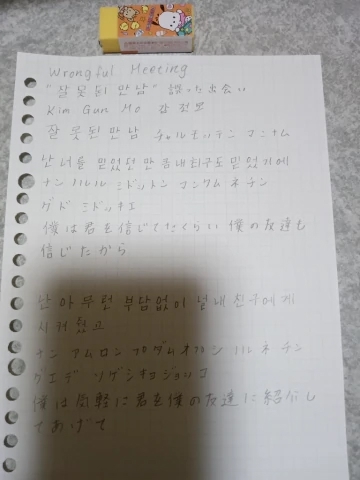 Wrongful Meeting
"잘못된 만남" 誤った出会い
Kim Gun Mo 김건모
잘못된 만남 チャルモッテン マンナム
난 너를 믿었던 만큼 내 친구도 믿었기에
ナン ノルル ミドットン マンクム ネ チン
グド ミドッキエ
僕は君を信じてたくらい僕の友達も
信じたから
난 아무런 부담없이 널 내 친구에게
시켜줬고
ナン アムロン プダムオプシ ノル ネ チン
グエゲ ソゲシキョジョッコ
僕は気軽に君を僕の友達に紹介し
てあげて